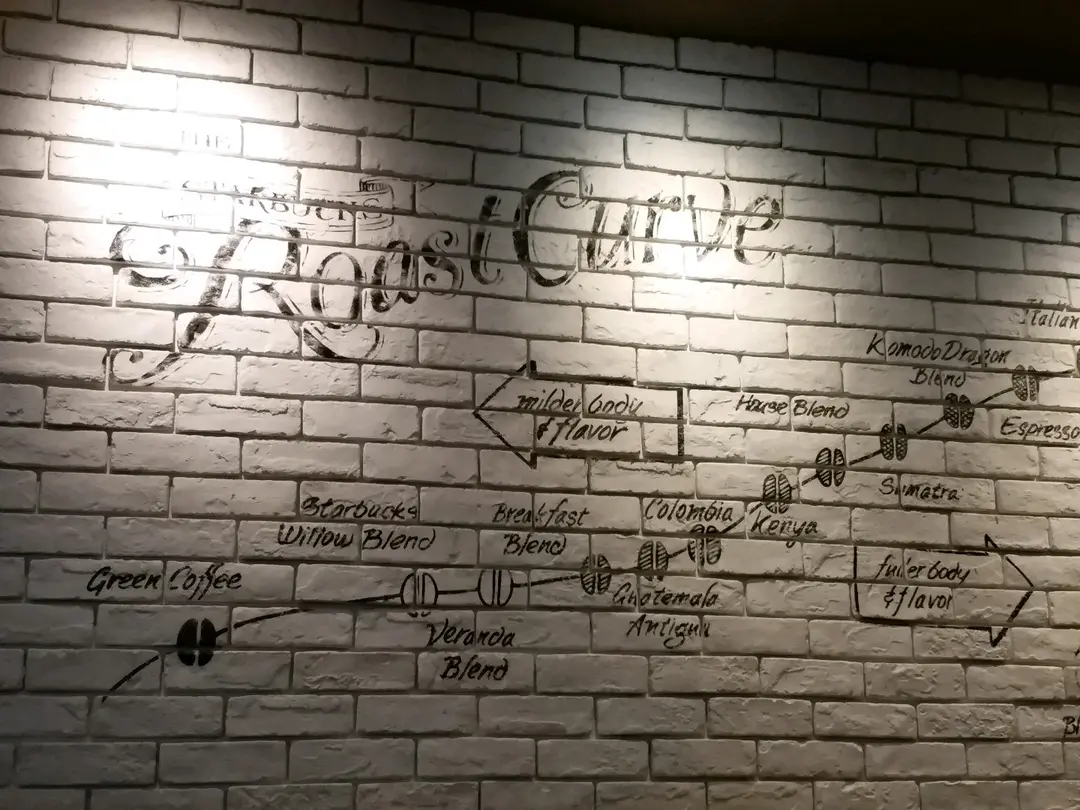 THE
STARBUCKS
Roast Curve
milder body
& flavor
Italian
Komodo Dragon
Blend
House Blend
Espresso
Sumatra
Starbucks
Willow Blend
Breakfast
Blend
Colombia
Kenya
Green Coffee
Ghatemala
Antigua
Veranda
Blend
fuller body
& flavor